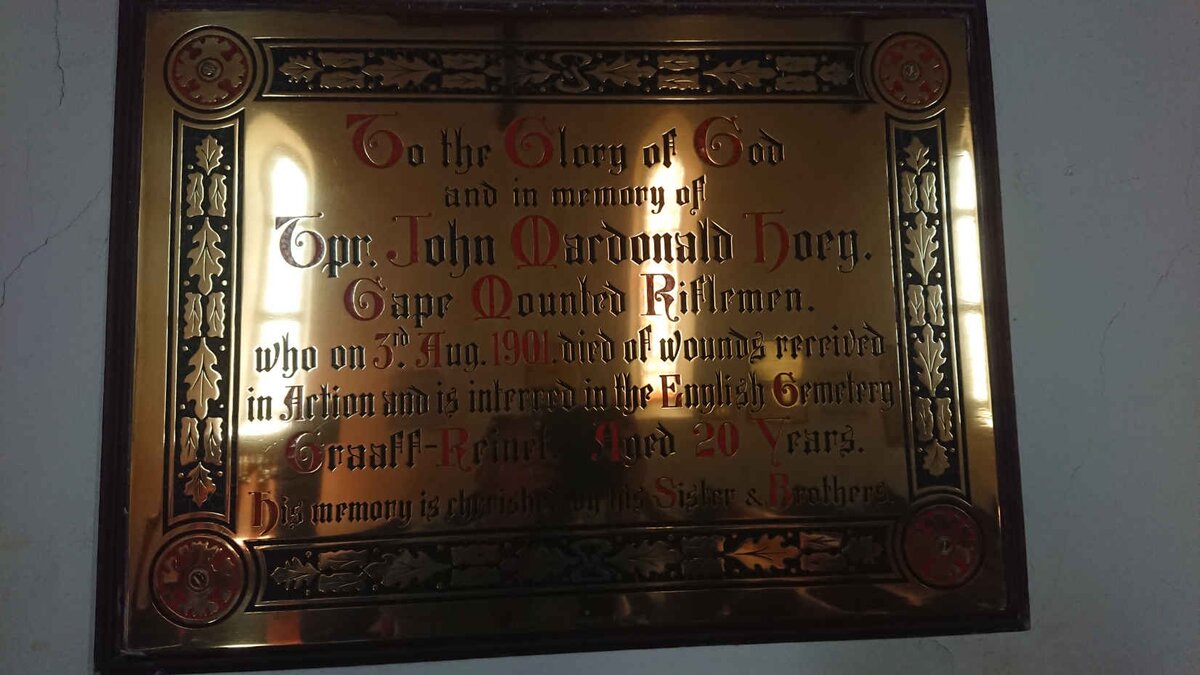 To the Glory of God
and in memory of
Tpr. John Macdonald Hoey.
Cape Mounted Riflemen.
who on 3rd. Aug. 1901. died of wounds received
in Action and is interred in the English Cemetery
Graaff-Reinet. Aged 20 Years.
His memory is cherished by his Sister & Brothers.